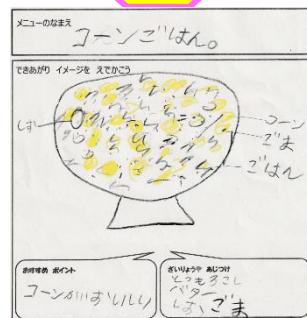 メニューのなまえ
コーンごはん。
できあがり イメージを えでかこう
しお
コーン
ごま
ごはん
おすすめ ポイント
コーンがおいしい
ざいりょうや あじつけ
とうもろこし
バター
しお、ごま